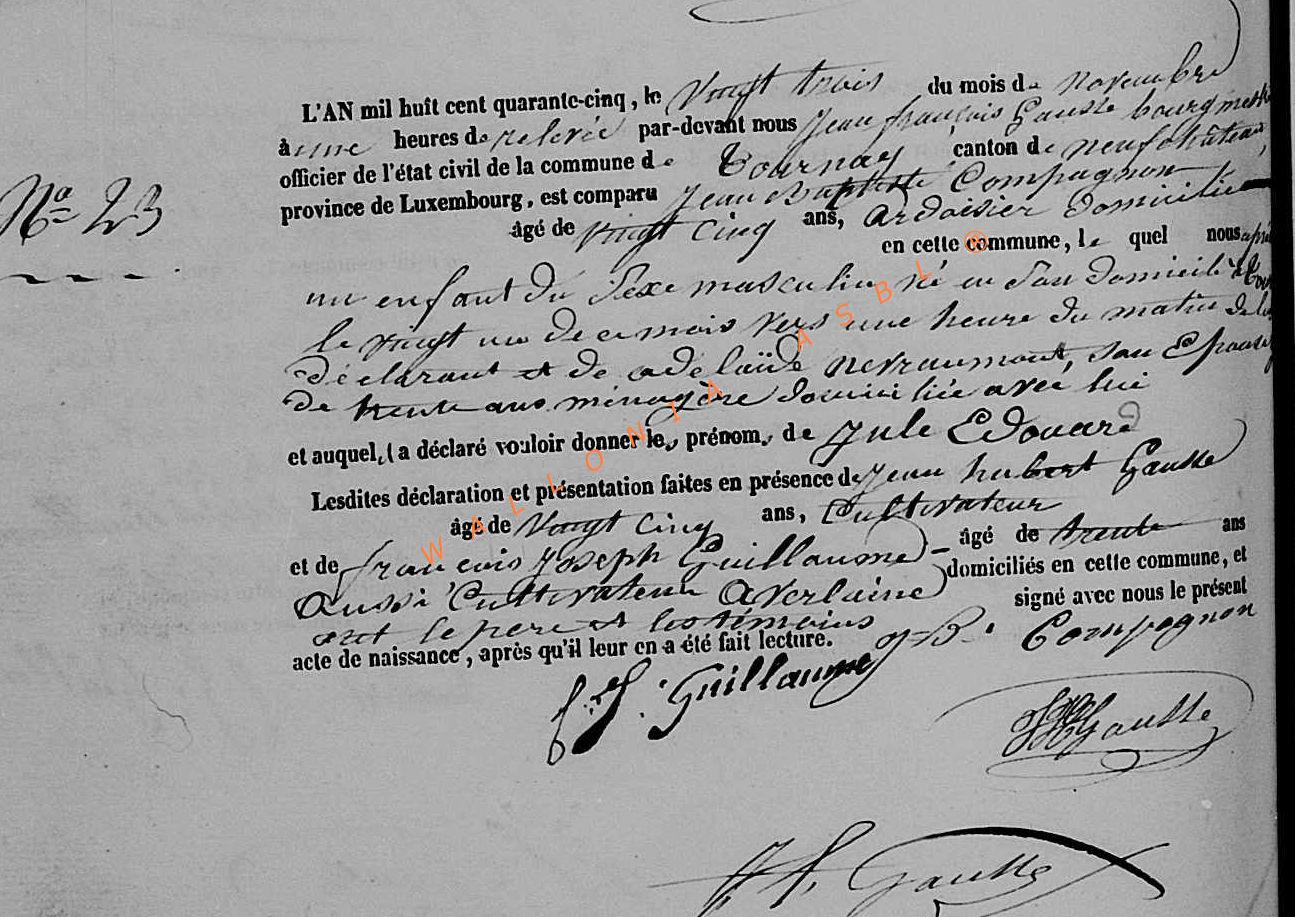 L'AN mil huit cent quarante-cinq, le Vingt trois du mois de novembre
à une heures de relevée par-devant nous Jean françois Gausse bourgmestre
officier de l'état civil de la commune de Tournay canton de neufchâteau,
province de Luxembourg, est comparu Jean Baptiste Compagnon
âgé de vingt cinq ans, ardoisier domicilié
en cette commune, le quel nous
un enfant du Sexe masculin né en son domicile à
le vingt un de ce mois vers une heure du matin de lui
déclarant et de adelaïde nevraumont, son Epouse
de trente ans ménagère domiciliée avec lui
et auquel, il a déclaré vouloir donner les prénoms de Jule Edouard
Lesdites déclaration et présentation faites en présence de Jean hubert Gausse
âgé de vingt cinq ans, Cultivateur
et de françois Joseph Guillaume âgé de trente ans
aussi Cultivateur a verlaine domiciliés en cette commune, et
ont le pere et les témoins signé avec nous le présent
acte de naissance, après qu'il leur en a été fait lecture.
No 23
J-B. Compagnon
f. J. Guillaume
JH Gausse
J. f. Gausse
WALLONIA ASBL ®